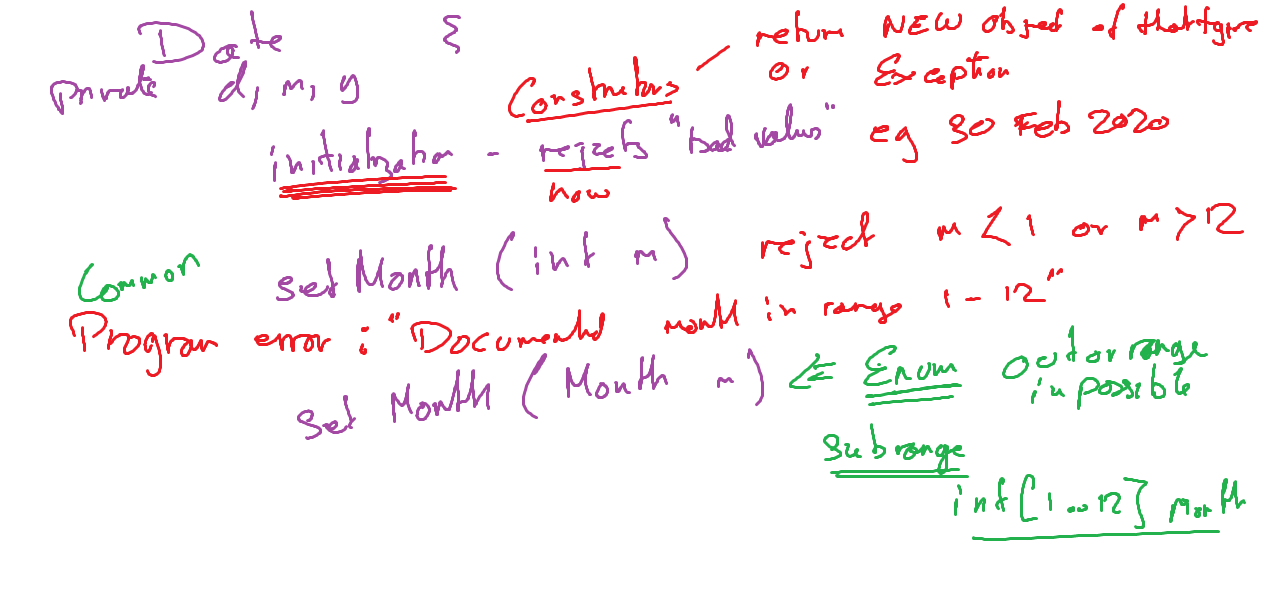 Date {
return NEW object of that type
private d, m, y
Constructors
or Exception
initialization - rejects "bad values"
eg 30 Feb 2020
how
Common
set Month (int m)
reject m < 1 or m > 12
Program error : "Documented month in range 1 - 12"
set Month (Month m) <= Enum
out or range
impossible
subrange
int [1..12] month